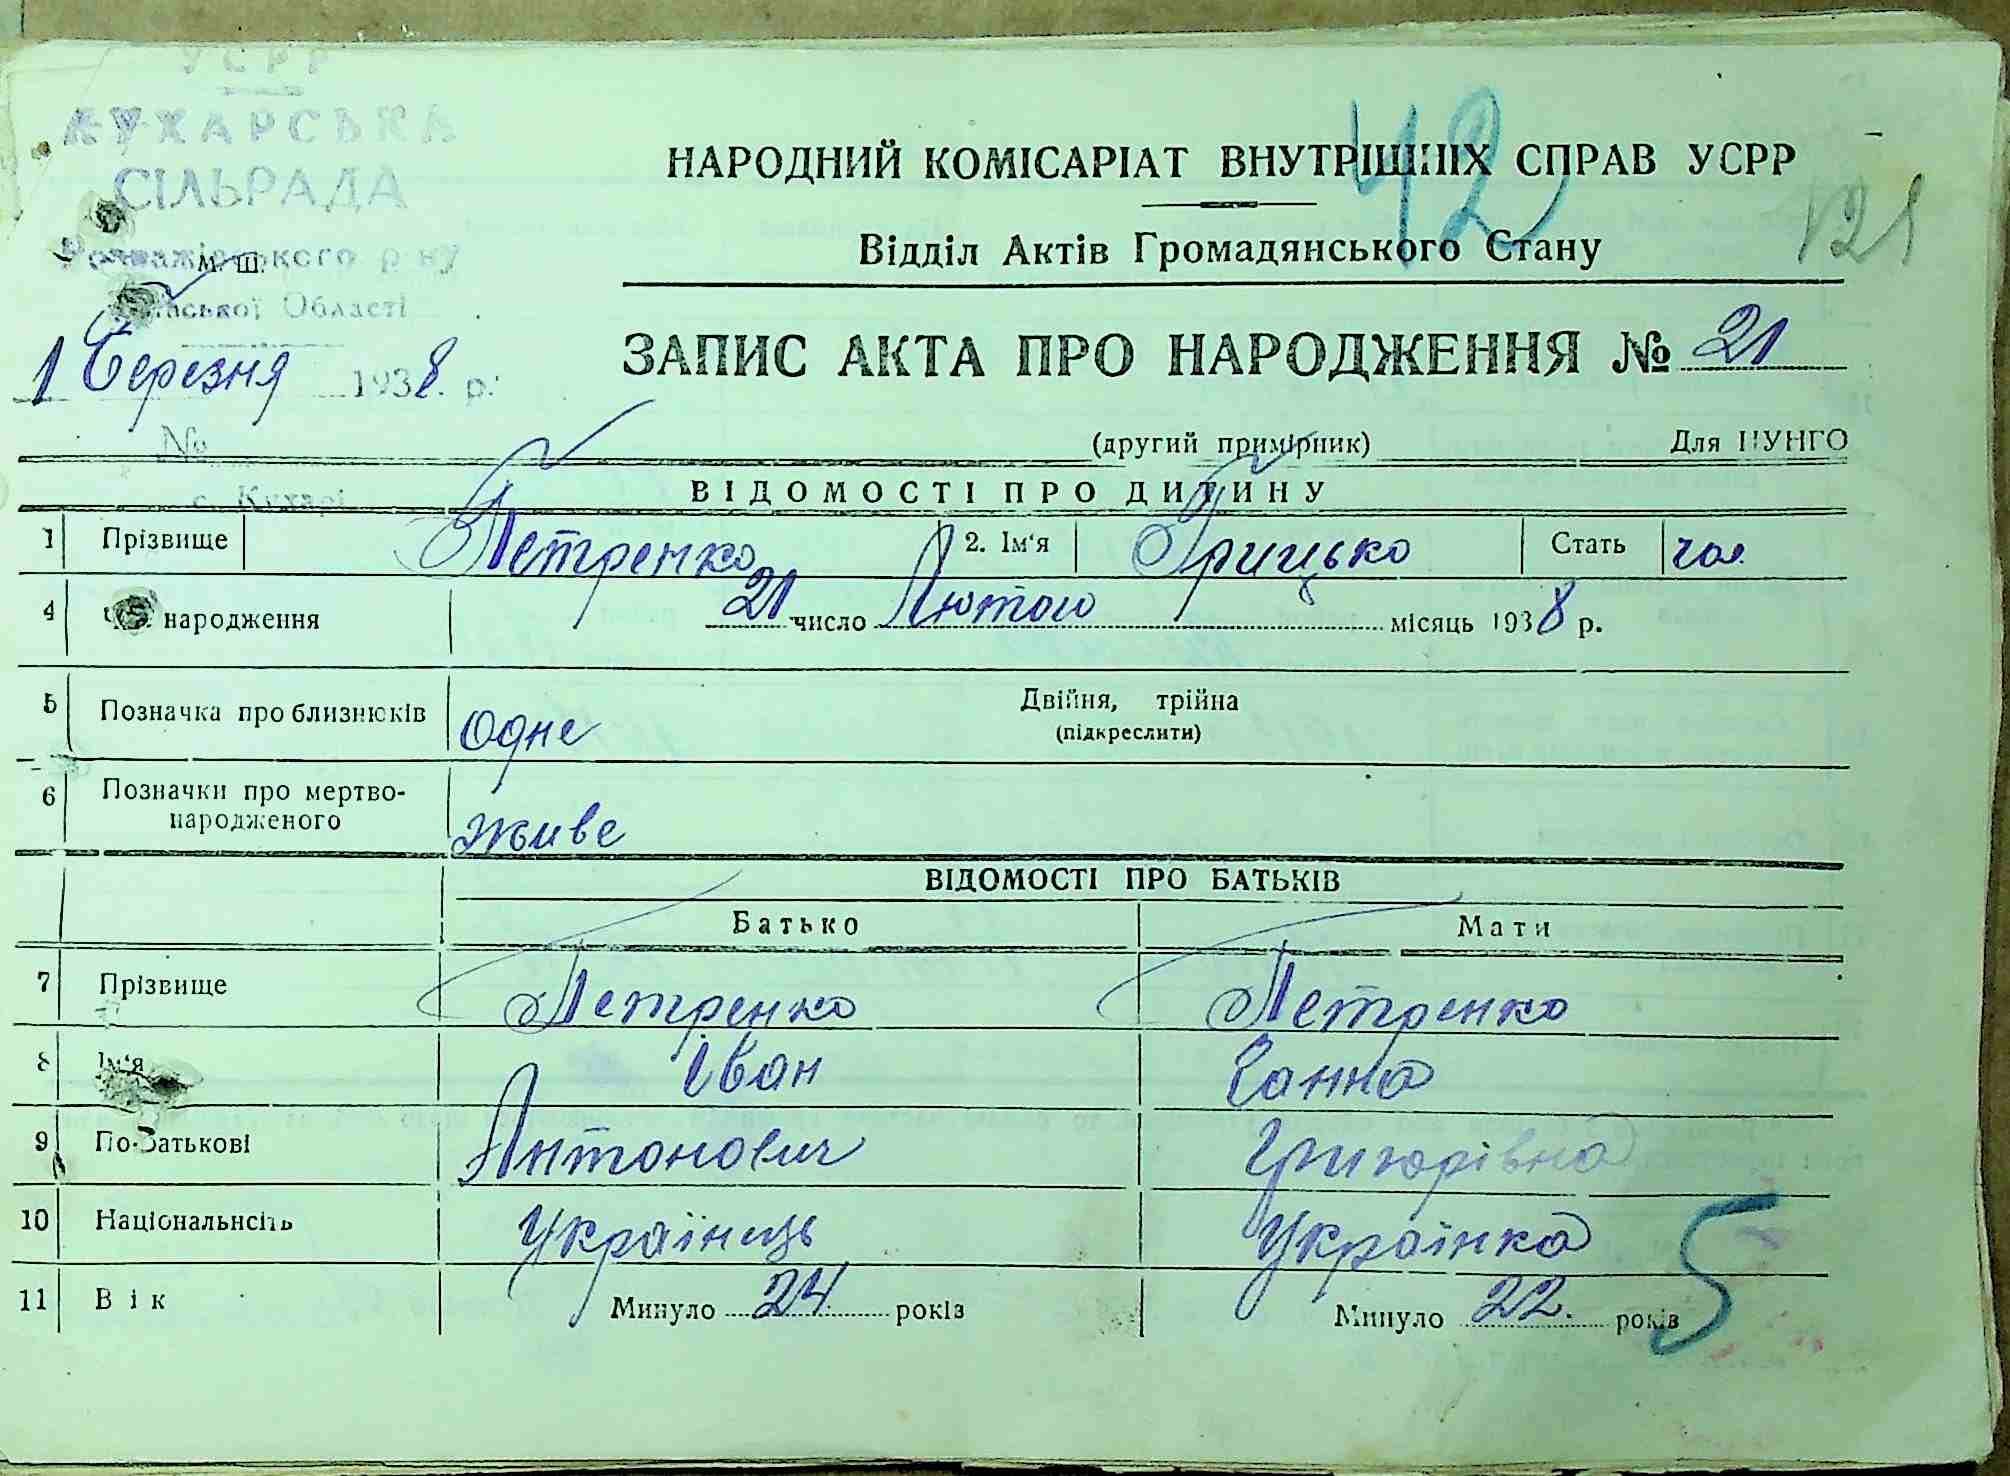 УСРР
КУХАРСЬКА
СІЛЬРАДА
Розважівського р-ну
М. Ш.
Київської Області
1 Березня 1938 р.
№
с. Кухарі
42
121
НАРОДНИЙ КОМІСАРІАТ ВНУТРІШНІХ СПРАВ УСРР
Відділ Актів Громадянського Стану
ЗАПИС АКТА ПРО НАРОДЖЕННЯ № 21
(другий примірник) Для ЦУНГО
ВІДОМОСТІ ПРО ДИТИНУ
1 Прізвище Петренко 2. Ім'я Грицько Стать чол.
4 Час народження 21 число Лютого місяць 1938 р.
5 Позначка про близнюків одне Двійня, трійна
(підкреслити)
6 Позначки про мертво-
народженого живе
ВІДОМОСТІ ПРО БАТЬКІВ
Батько Мати
7 Прізвище Петренко Петренко
8 Ім'я Іван Ганна
9 По-батькові Антонович Григорівна
10 Національнсіть Українець Українка
11 Вік Минуло 24 років Минуло 22. років
5